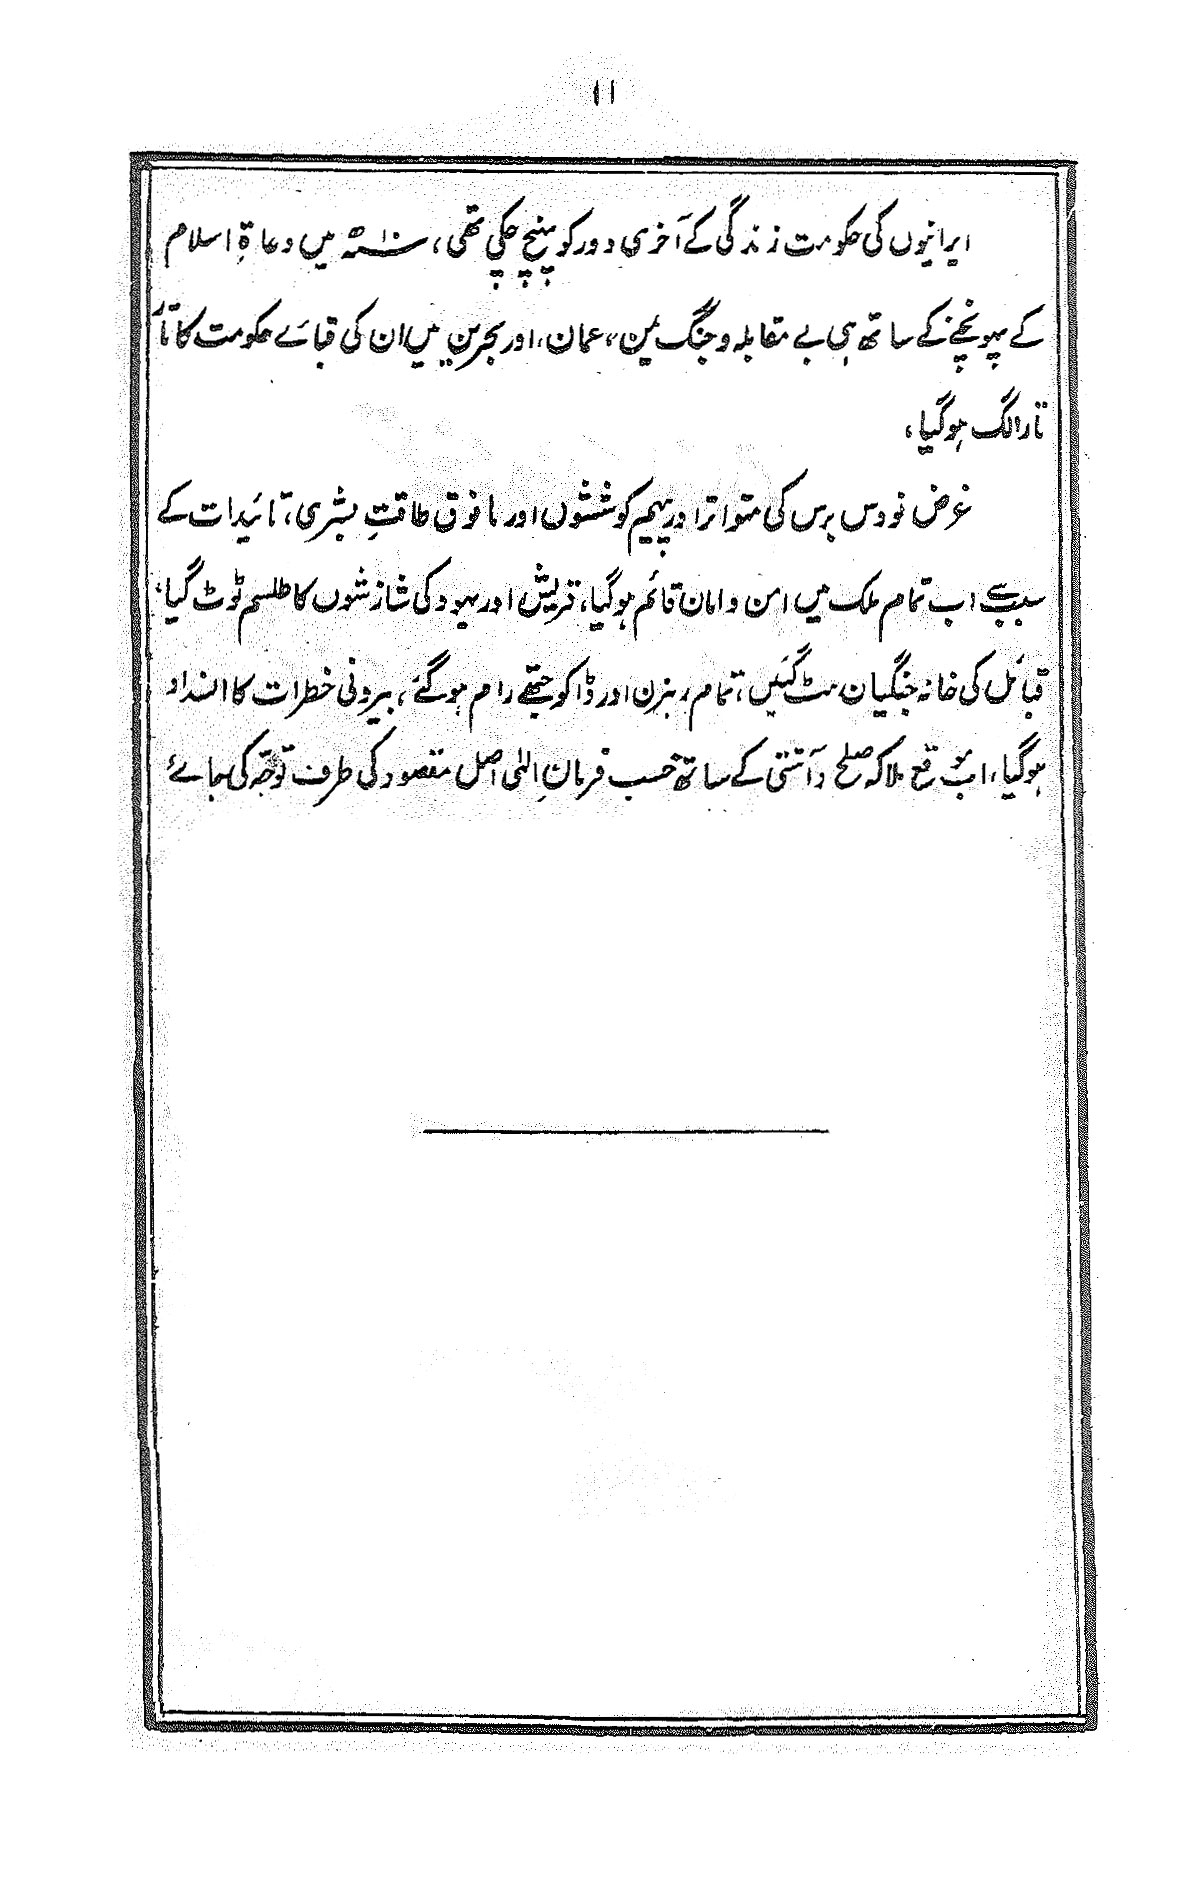 ۱۱
ایرانیوں کی حکومت زندگی کے آخری دور کو پہنچ چکی تھی، سنہ ۸ھ میں دعاۃِ اسلام
کے پہونچنے کے ساتھ ہی بے مقابلہ و جنگ یمن، عمان، اور بحرین میں ان کی قبائے حکومت کا تار
تار الگ ہوگیا،
غرض نو دس برس کی متواتر اور پیہم کوششوں اور ما فوق طاقتِ بشری، تائیدات کے
سبب سے اب تمام ملک میں امن و امان قائم ہوگیا، قریش اور یہود کی شازشوں کا طلسم ٹوٹ گیا،
قبائل کی خانہ جنگیاں مٹ گئیں، تمام رہزن اور ڈاکو جتھے رام ہوگئے، بیرونی خطرات کا انسداد
ہوگیا، اب موقع ملا کہ صلح و آشتی کے ساتھ حسب فرمانِ الٰہی اصل مقصود کی طرف توجّہ کی جائے